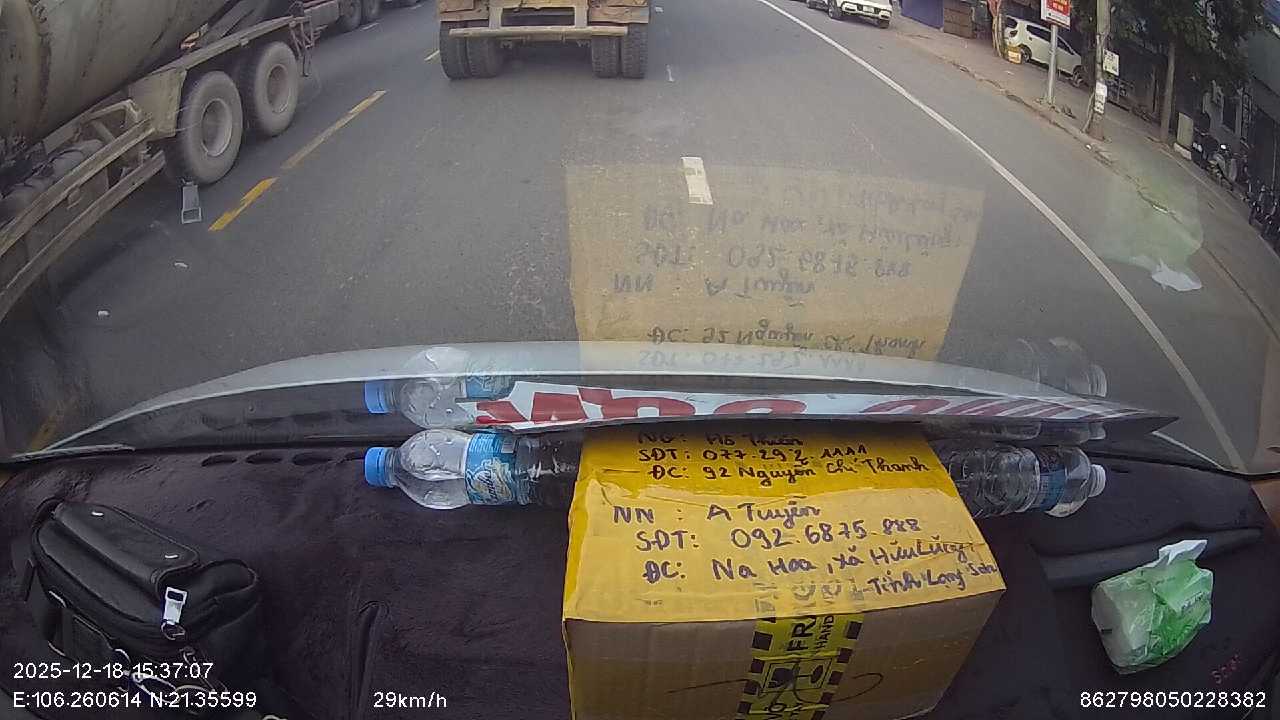 NG: Hồ Thiên
SĐT: 077.292.1111
ĐC: 92 Nguyễn Chí Thanh
NN : A Tuyễn
SĐT: 092.6875.888
ĐC: Na Hoa, xã Hữu Lũng,
-Tỉnh Lạng Sơn
2025-12-18 15:37:07
E:106.260614 N:21.35599
29km/h
862798050228382